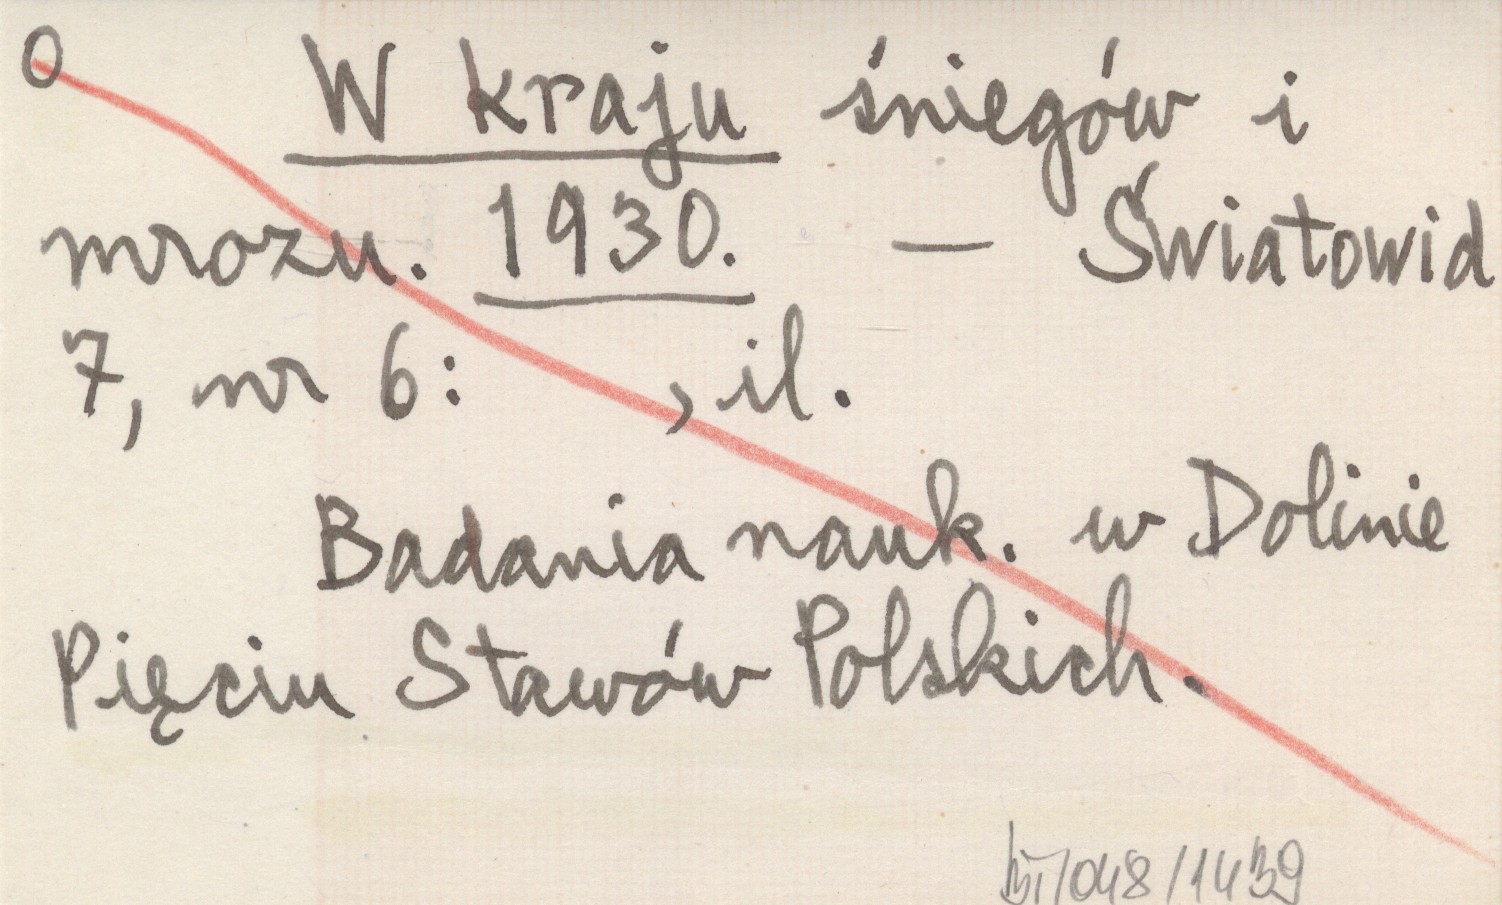 0 W kraju śniegów i
mrozu. 1930. — Światowid
7, nr 6: , il.
Badania nauk. w Dolinie
Pięciu Stawów Polskich.
/048/1439